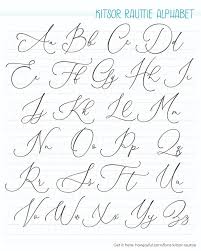 KITSOR RAUTTIE ALPHABET
Aa Bb Cc Dd
Ee Ff Gg Hh Ii
Jj Kk Ll Mm
Nn Oo Pp Qq
Rr Ss Tt Uu
Vv Ww Xx Yy Zz